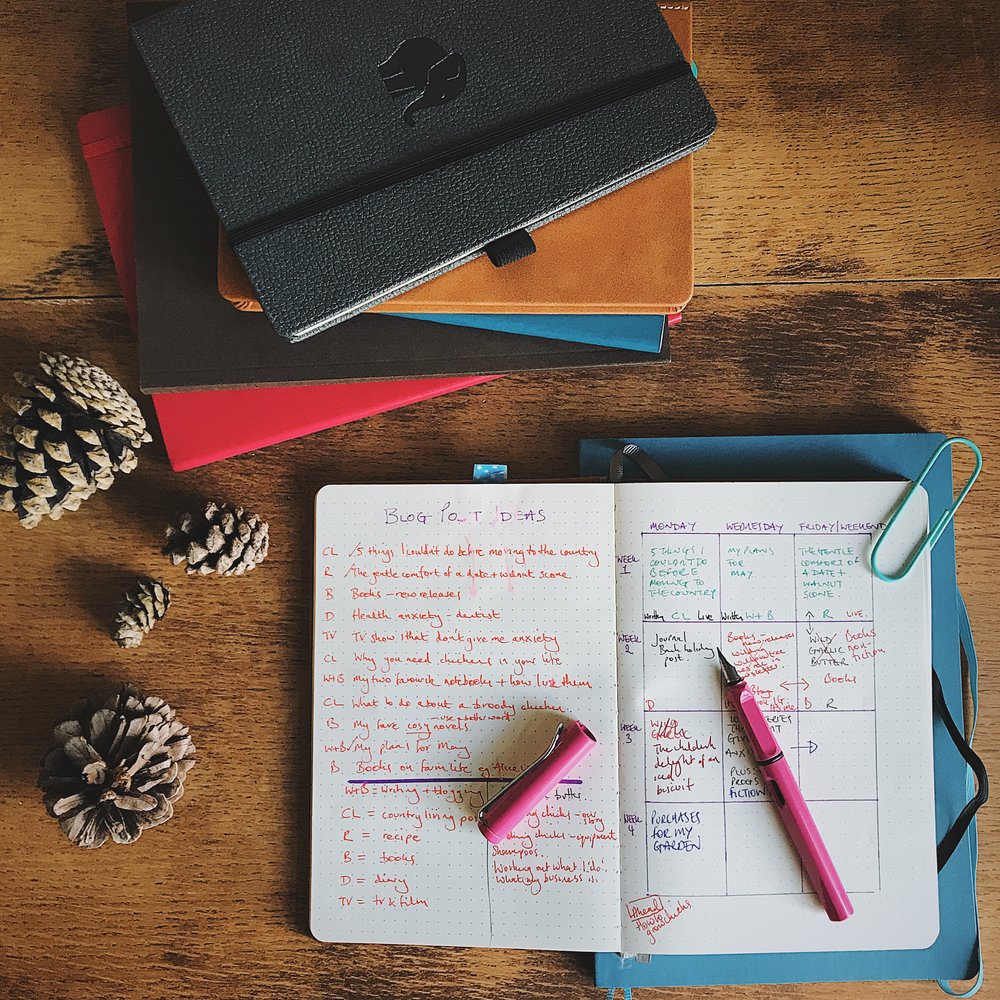 BLOG POST IDEAS
CL 5 things I couldn't do before moving to the country
R The gentle comfort of a date + walnut scone.
B Books - new releases
D Health anxiety - dentist
TV TV shows that don't give me anxiety
CL Why you need chickens in your life
W+B my two favourite notebooks + how I use them
CL What to do about a broody chicken
- use a better word
B My fave cosy novels
W+B My plans for May
B Books on farm life eg
W+B = Writing + blogging
CL = country living
R = recipe
B = books
D = diary
TV = tv & film
butter
chicks - our
story
chicks - equipment
Shampoos.
Working out what I do.
business is.
MONDAY WEDNESDAY FRIDAY/WEEKEND
WEEK 1
5 THINGS I
COULDN'T DO
BEFORE
MOVING TO
THE COUNTRY
CL Live
MY PLANS
FOR
MAY.
W+B
THE GENTLE
COMFORT OF
A DATE +
WALNUT
SCONE.
R LIVE.
WEEK 2
Journal
Bank holiday
post.
D
Books
WILD
GARLIC
BUTTER
R
Books
non-
fiction
Books
B
WEEK 3
WILD
GARLIC
The
delight of an
iced
biscuit
PLUS
PROOFS
FICTION
D
WEEK 4
PURCHASES
FOR MY
GARDEN
Ahead
How to